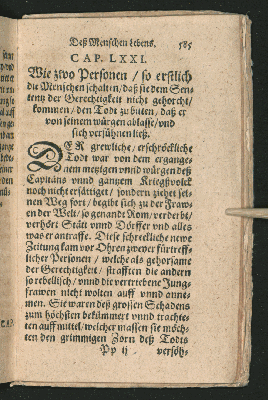 Deß Menschen Lebens. 585
CAP. LXXI.
Wie zwo Personen / so erstlich
die Menschen schalten / daß sie dem Sen-
tentz der Gerechtigkeit nicht gehorcht /
kommen / den Todt zu bitten / daß er
von seinem würgen ablasse / vnd
sich versühnen ließ.
DER grewliche / erschröckliche
Todt war von dem ergange-
nem metzgen vnnd würgen deß
Capitäns vnnd gantzem Kriegßvolck
noch nicht ersättiget / sondern ziehet sei-
nen Weg fort / begibt sich zu der Fraw-
en der Welt / so genandt Rom / verderbt /
verhört Stätt vnnd Dörffer vnd alles
was er antraffe. Diese schreckliche newe
Zeitung kam vor Ohren zweyer fürtreff-
licher Personen / welche als gehorsame
der Gerechtigkeit / strafften die andern
so rebellisch / vnnd die vertriebene Jung-
frawen nicht wolten auff vnnd anne-
men. Sie waren deß grossen Schadens
zum höchsten bekümmert vnnd trachte-
ten auff mittel / welcher massen sie möch-
ten den grimmigen Zorn deß Todts
Pp ij versöh-